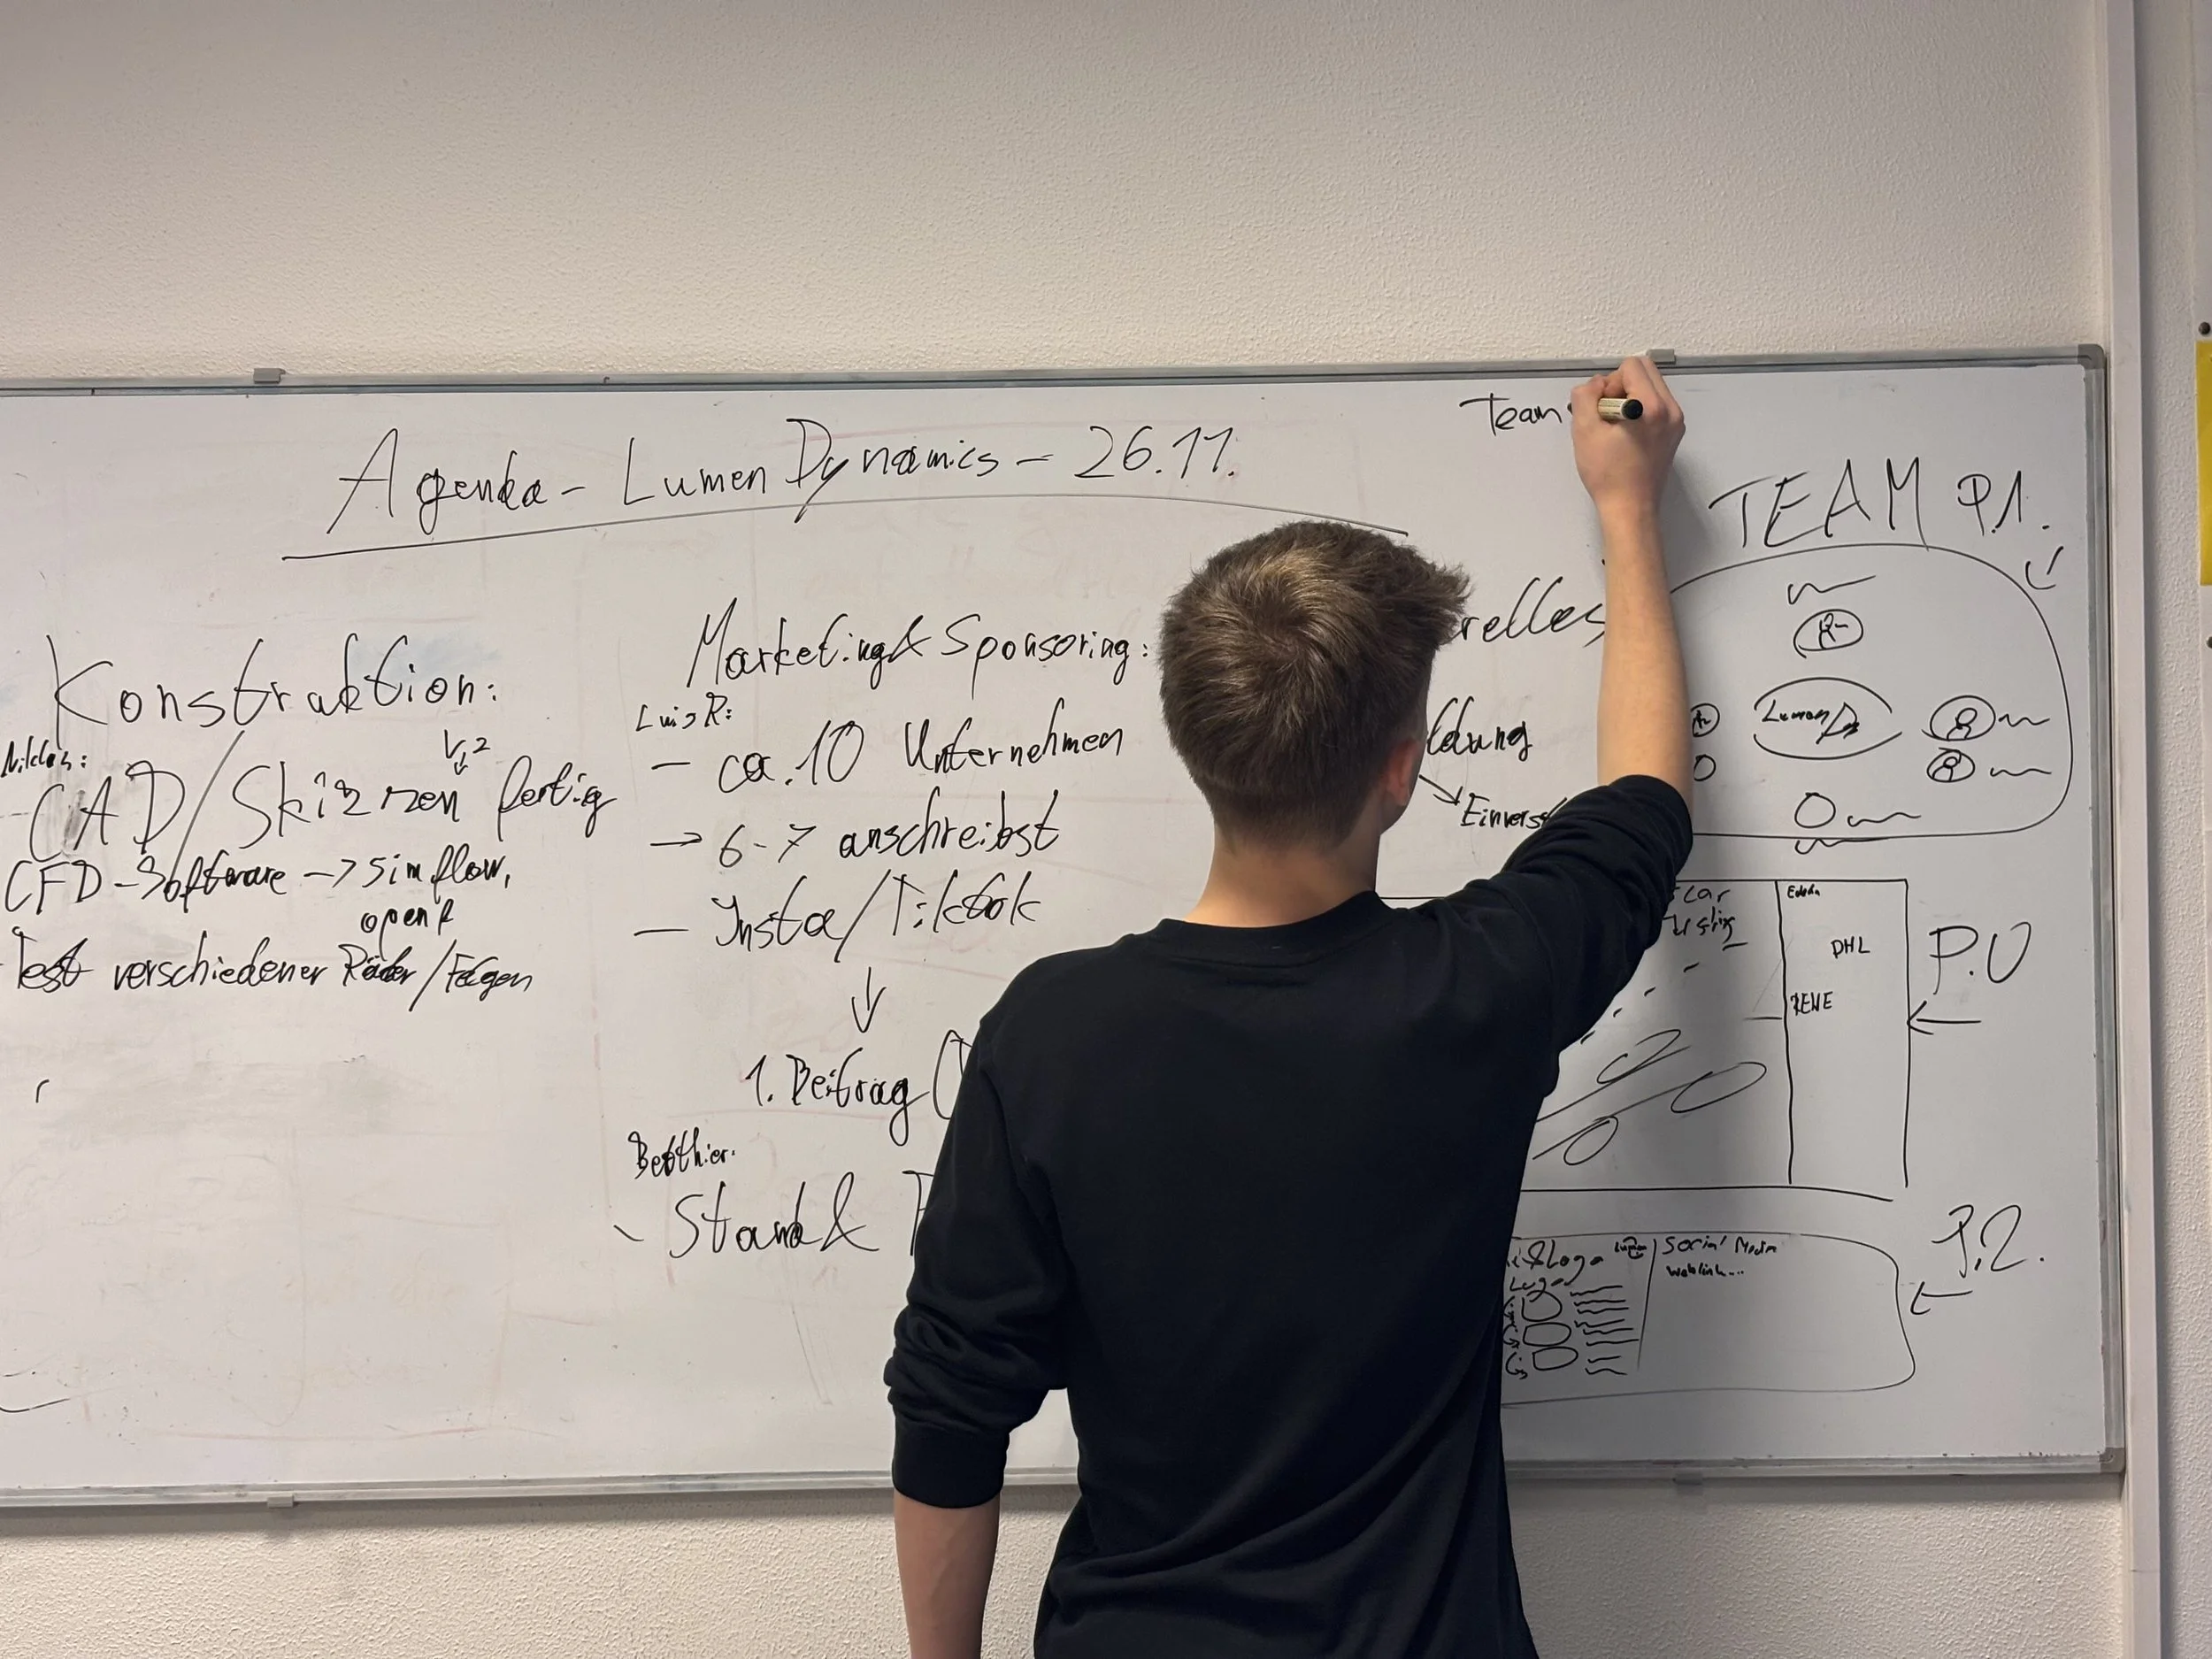 Team
Agenda - Lumen Dynamics - 26.11.
Konstruktion:
Niklas:
V.2
CAD/Skizzen fertig
CFD-Software -> simflow,
openf
Test verschiedener Räder/Felgen
Marketing & Sponsoring:
Luis R:
- ca. 10 Unternehmen
-> 6-7 anschreibst
- Insta/Tiktok
↓
1. Beitrag (
- Stand &
relles
ldung
Einvers
TEAM P.1.
Lumen
car
DHL
REWE
P.0
P.2.
Logo
Social Media
weblink...